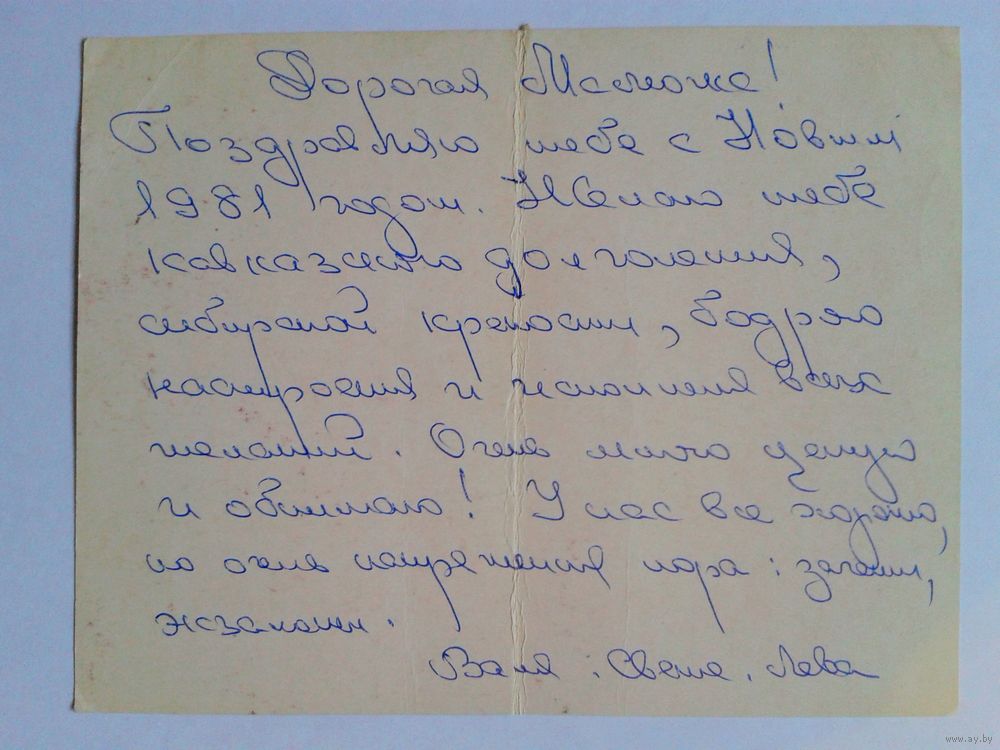 Дорогая Мамочка!
Поздравляю тебя с Новым
1981 годом. Желаю тебе
кавказского долголетия,
сибирской крепости, бодрого
настроения и исполнения всех
желаний. Очень много целую
и обнимаю! У нас все хорошо,
но очень напряженная пора: зачеты,
экзамены.
Валя, Света, Лева
www.ay.by